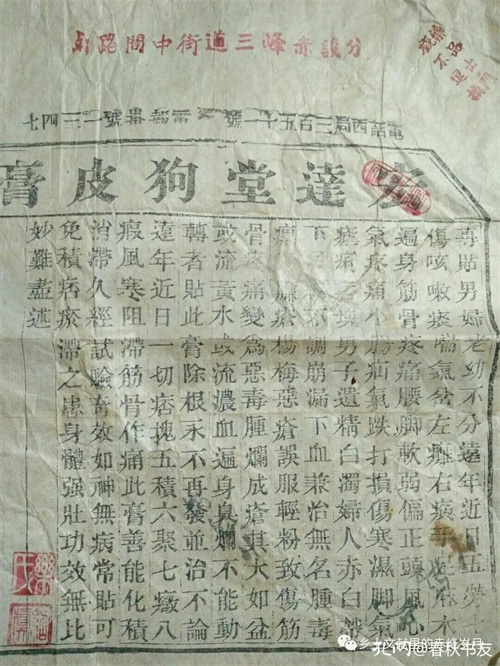 分設赤峰三道街中間路
電話西局三百五十一號　電報掛號
宏達堂狗皮膏
專貼男婦老幼不分遠年近日五勞
傷咳嗽痰喘氣急左癱右瘓手足麻木
遍身筋骨疼痛腰脚軟弱偏正頭風心
氣疼痛小腸疝氣跌打損傷寒濕脚氣
瘧痢塊男子遺精白濁婦人赤白帶
下不調崩漏下血兼治無名腫毒
臁瘡楊梅惡瘡誤服輕粉致傷筋
骨疼痛變為惡毒腫爛成瘡其大如盆
或流黃水或流濃血遍身臭爛不能動
轉者貼此膏除根永不再發並治不論
遠年近日一切痞塊五積六聚七癥八
瘕風寒阻滯筋骨作痛此膏善能化積
消滯久經試驗奇效如神無病常貼可
免積痞瘀滯之患身體强壯功效無比
妙難盡述
乡土文献里的赤峰岁月
孔网@春秋书友